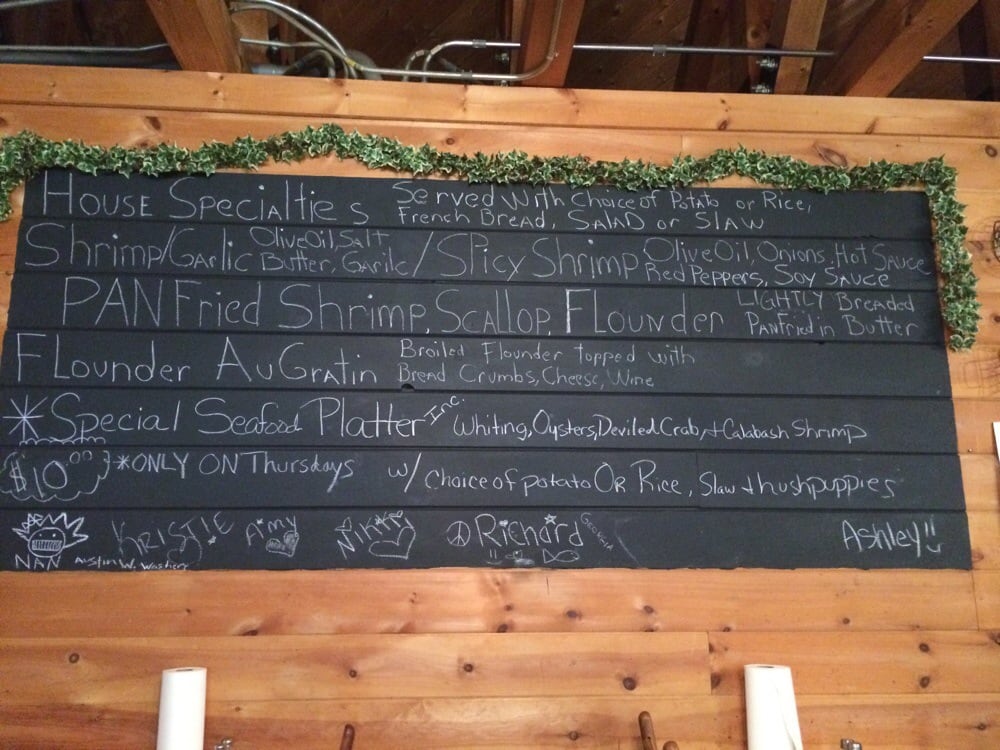 House Specialties Served With Choice of Potato or Rice,
French Bread, SALAD or SLAW
Shrimp/Garlic Olive Oil, Salt, Butter, Garilc / Spicy Shrimp Olive Oil, Onions, Hot Sauce
Red Peppers, Soy Sauce
PAN Fried Shrimp, Scallop, Flounder LIGHTLY Breaded
Panfried in Butter
Flounder AuGratin Broiled Flounder topped with
Bread Crumbs, Cheese, Wine
*Special Seafood Platter Inc. Whiting, Oysters, Deviled Crab, + Calabash Shrimp
$10.00 *ONLY ON Thursdays w/ Choice of potato OR Rice, Slaw + hushpuppies
NAN KRISTIE Aimy Nikki Richard Georgia Ashley!!
Austin W.